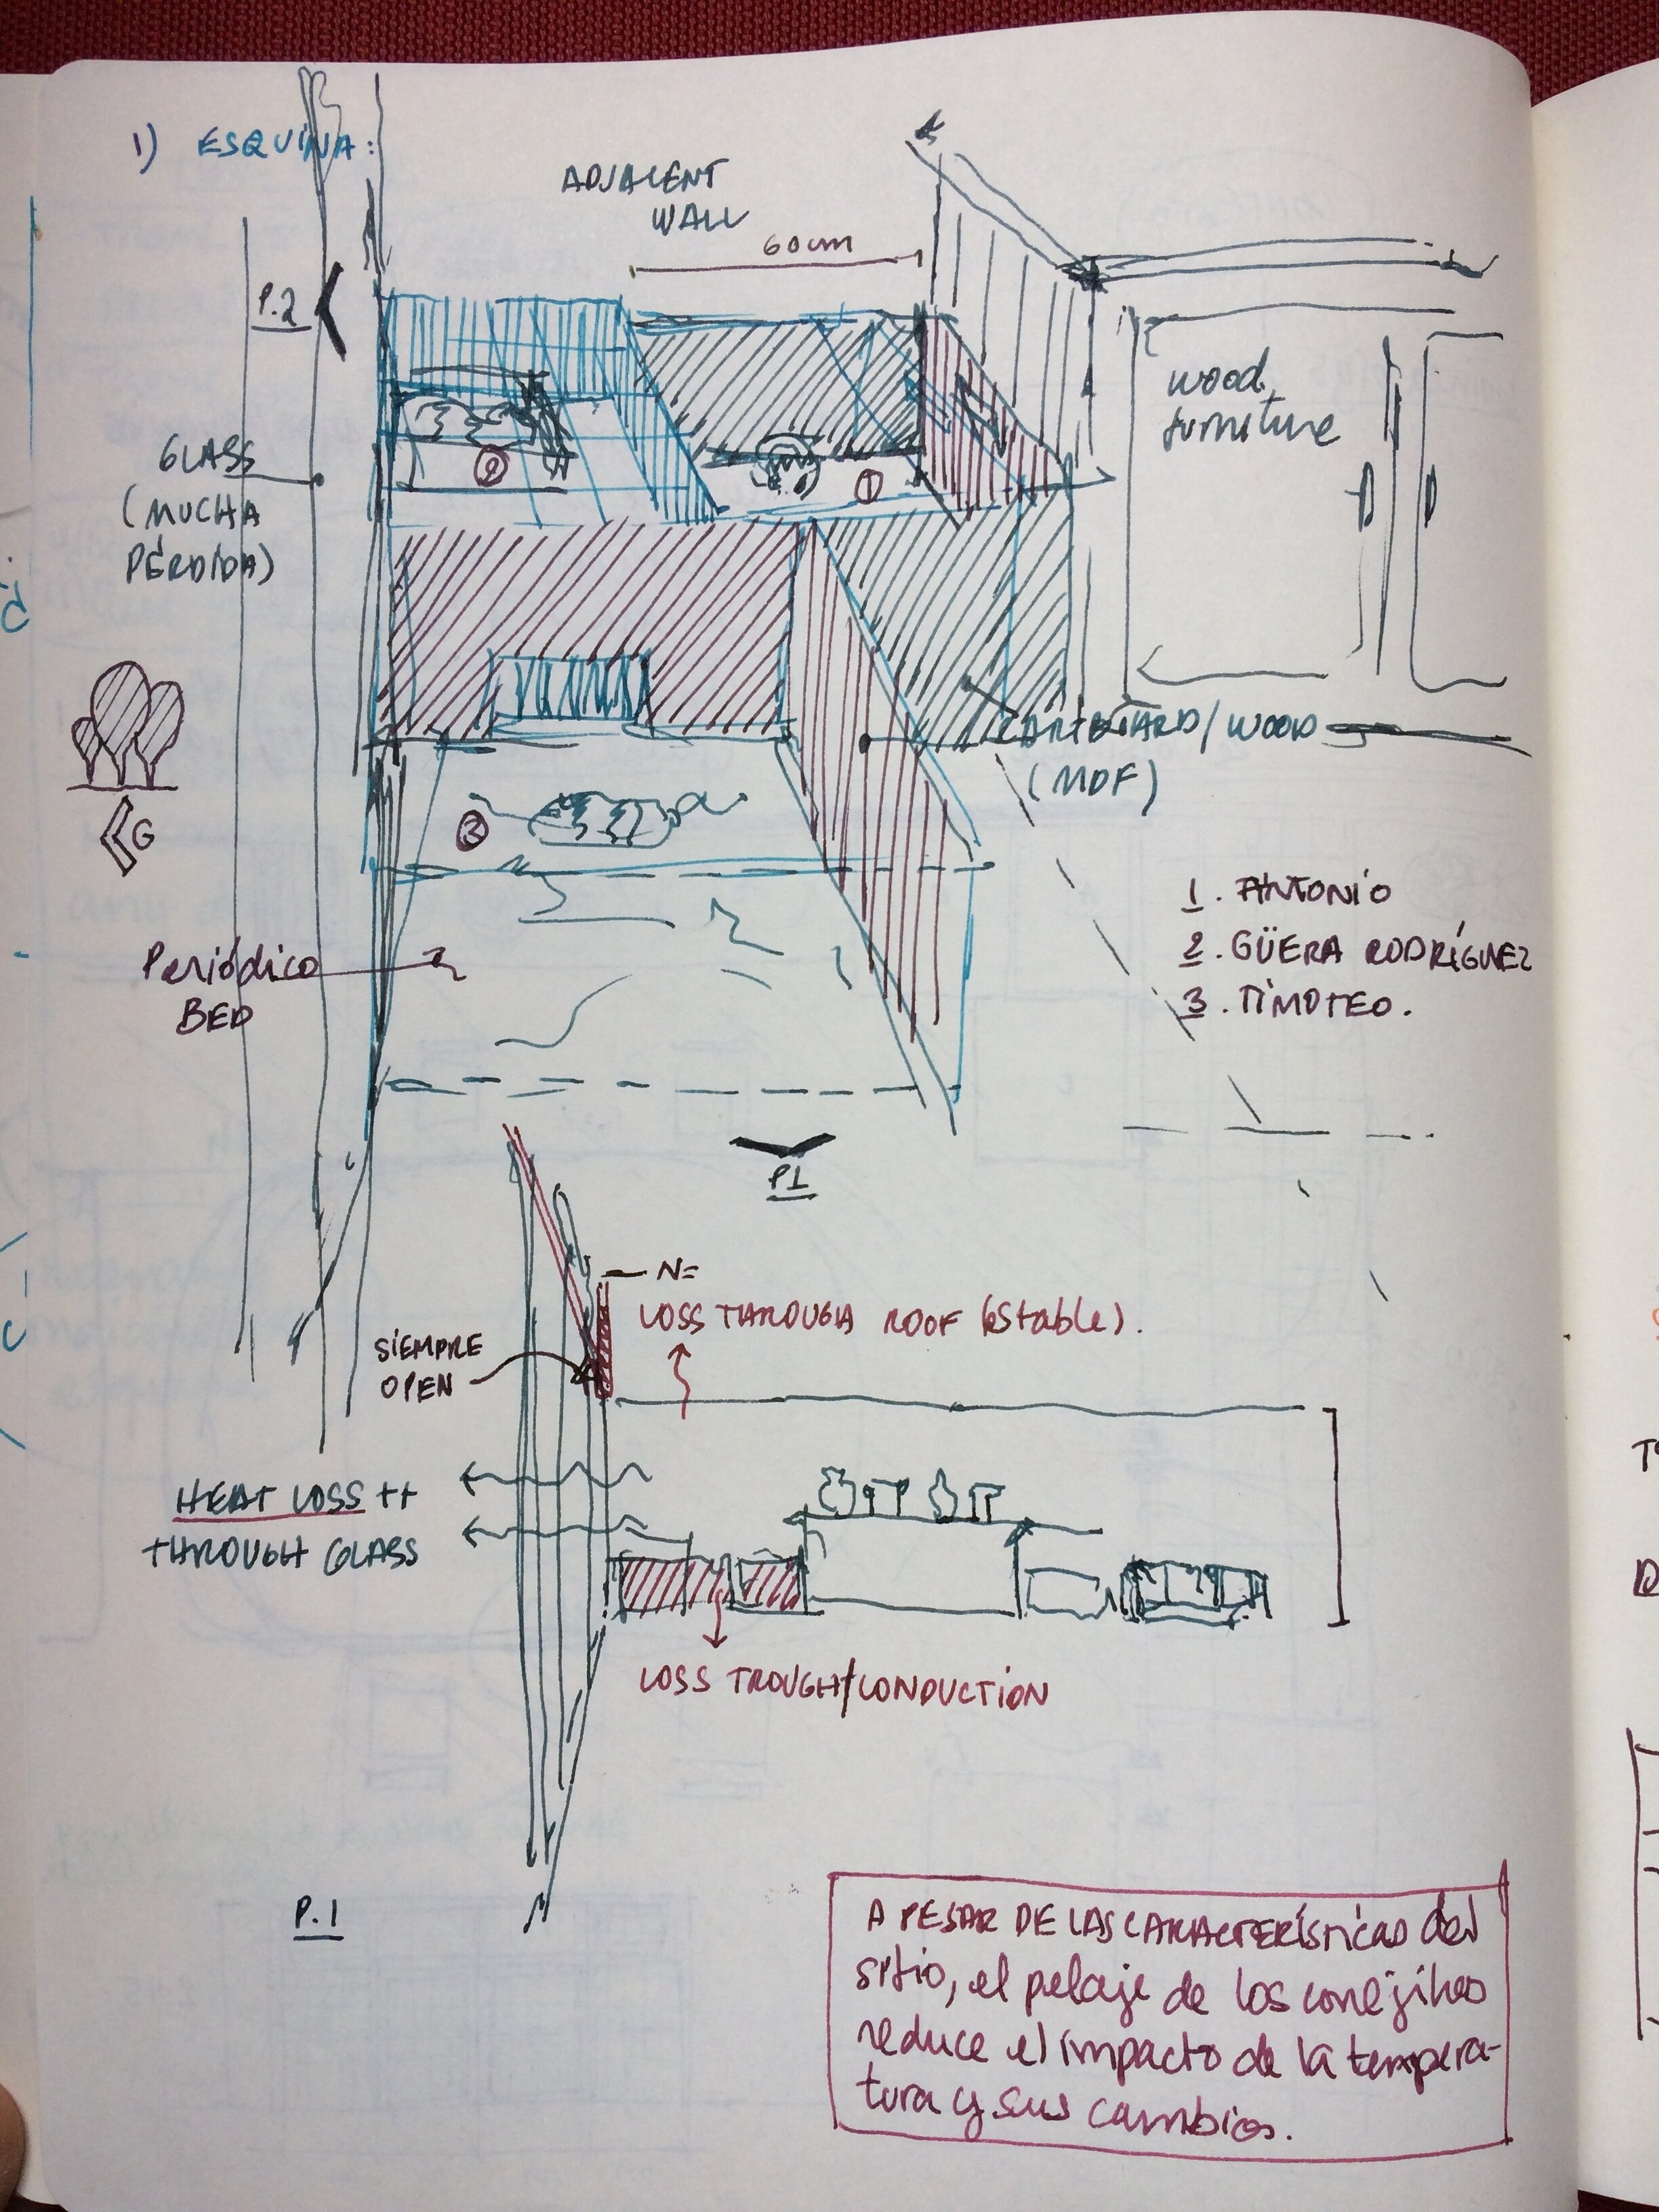 1) ESQUINA:
ADJACENT
WALL
60cm
P.2
wood
furniture
GLASS
(MUCHA
PÉRDIDA)
2
1
CARTBOARD/WOOD
(MDF)
G
3
1. ANTONIO
2. GÜERA RODRÍGUEZ
3. TIMOTEO.
Periódico
BED
P1
N=
LOSS THROUGH ROOF (eStable).
SIEMPRE
OPEN
HEAT LOSS ++
THROUGH GLASS
LOSS TROUGH/CONDUCTION
P.1
A PESAR DE LAS CARACTERÍSTICAS del
sitio, el pelaje de los conejitos
reduce el impacto de la tempera-
tura y sus cambios.